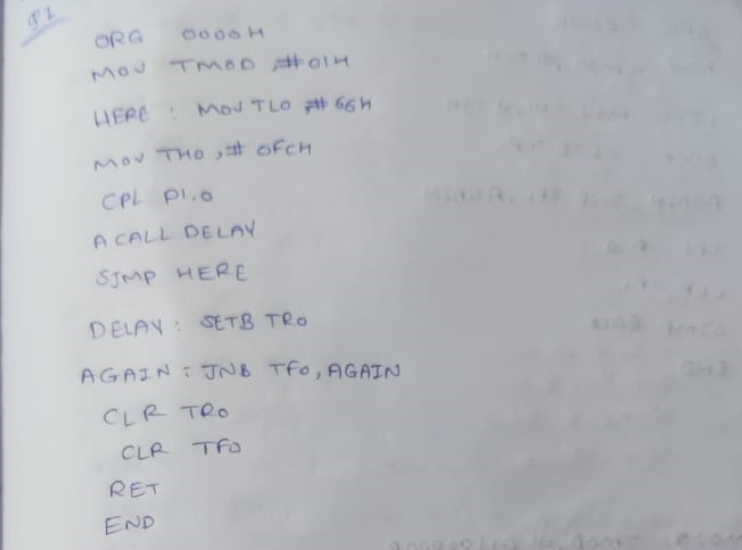 P1
ORG 0000H
MOV TMOD #01H
HERE : MOV TL0 #66H
MOV TH0 ,# 0FCH
CPL P1.0
ACALL DELAY
SJMP HERE
DELAY : SETB TR0
AGAIN : JNB TF0, AGAIN
CLR TR0
CLR TF0
RET
END